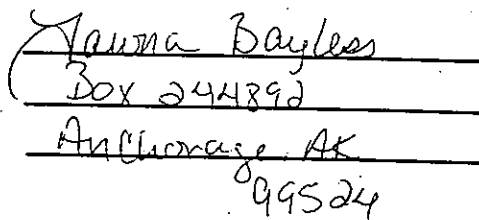 Tawna Bayless
Box 244892
Anchorage AK
99524